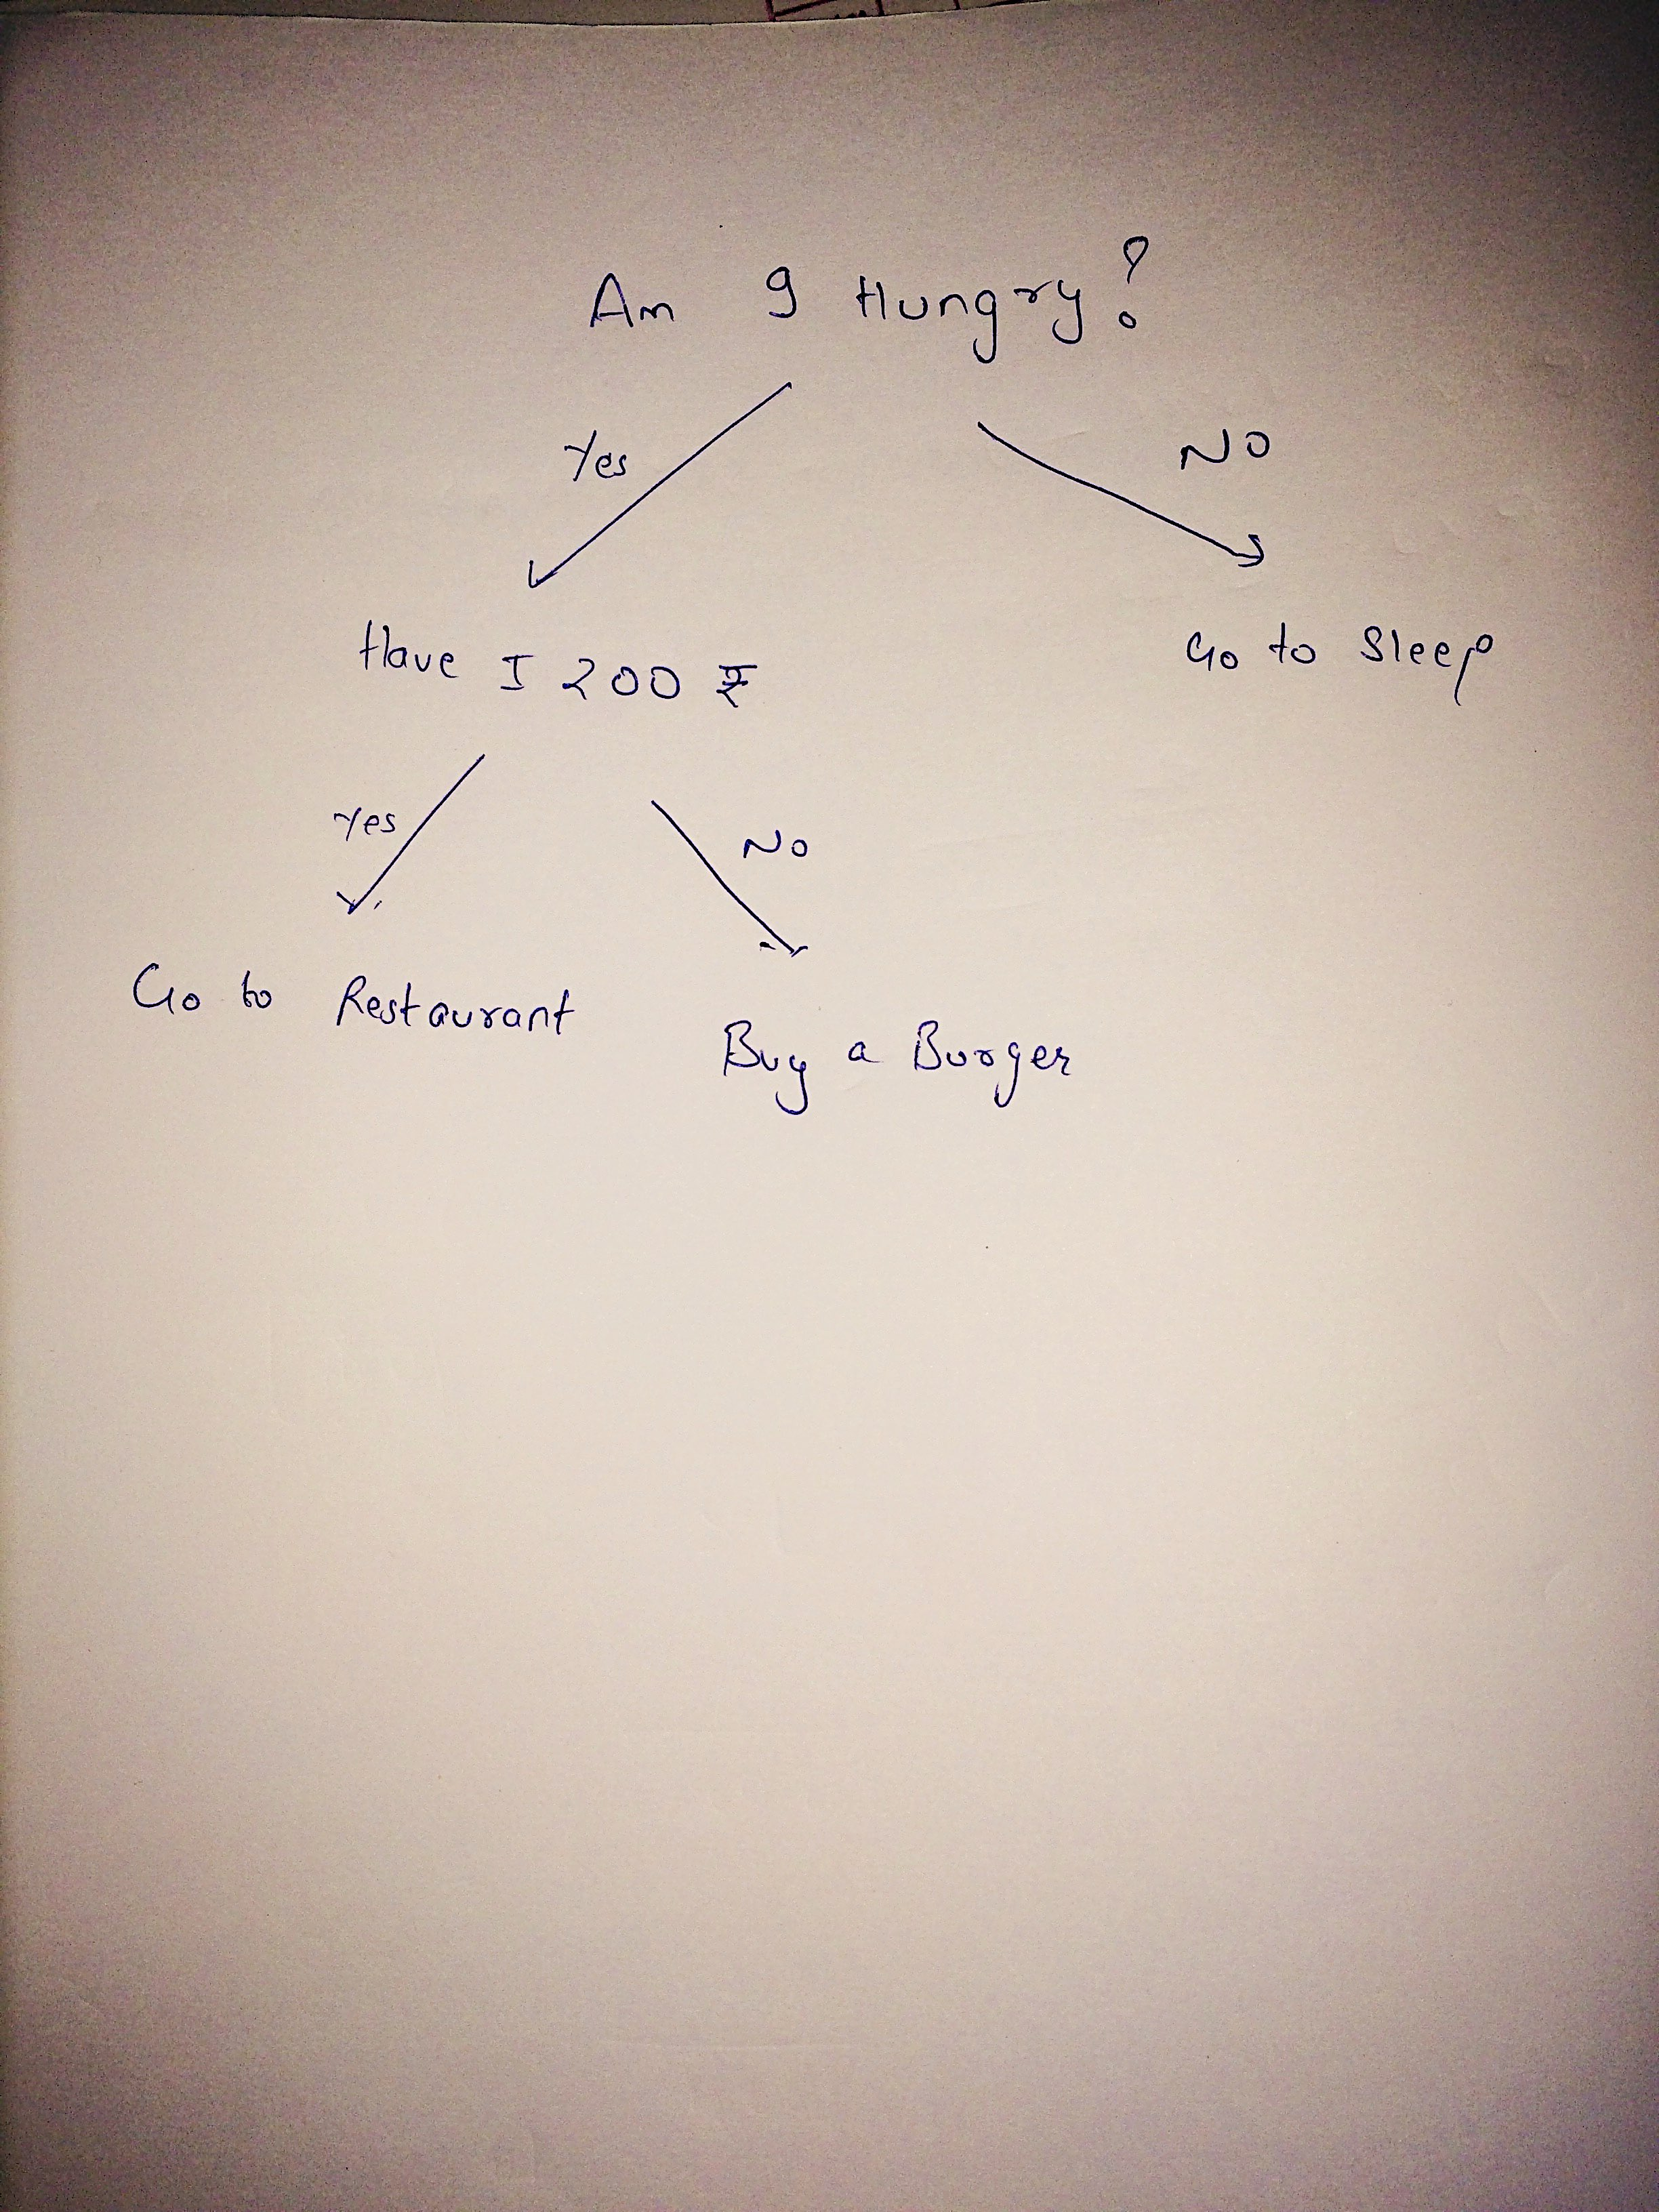 Am I Hungry?
Yes
NO
Have I 200 ₹
Go to Sleep
Yes
No
Go to Restaurant
Buy a Burger